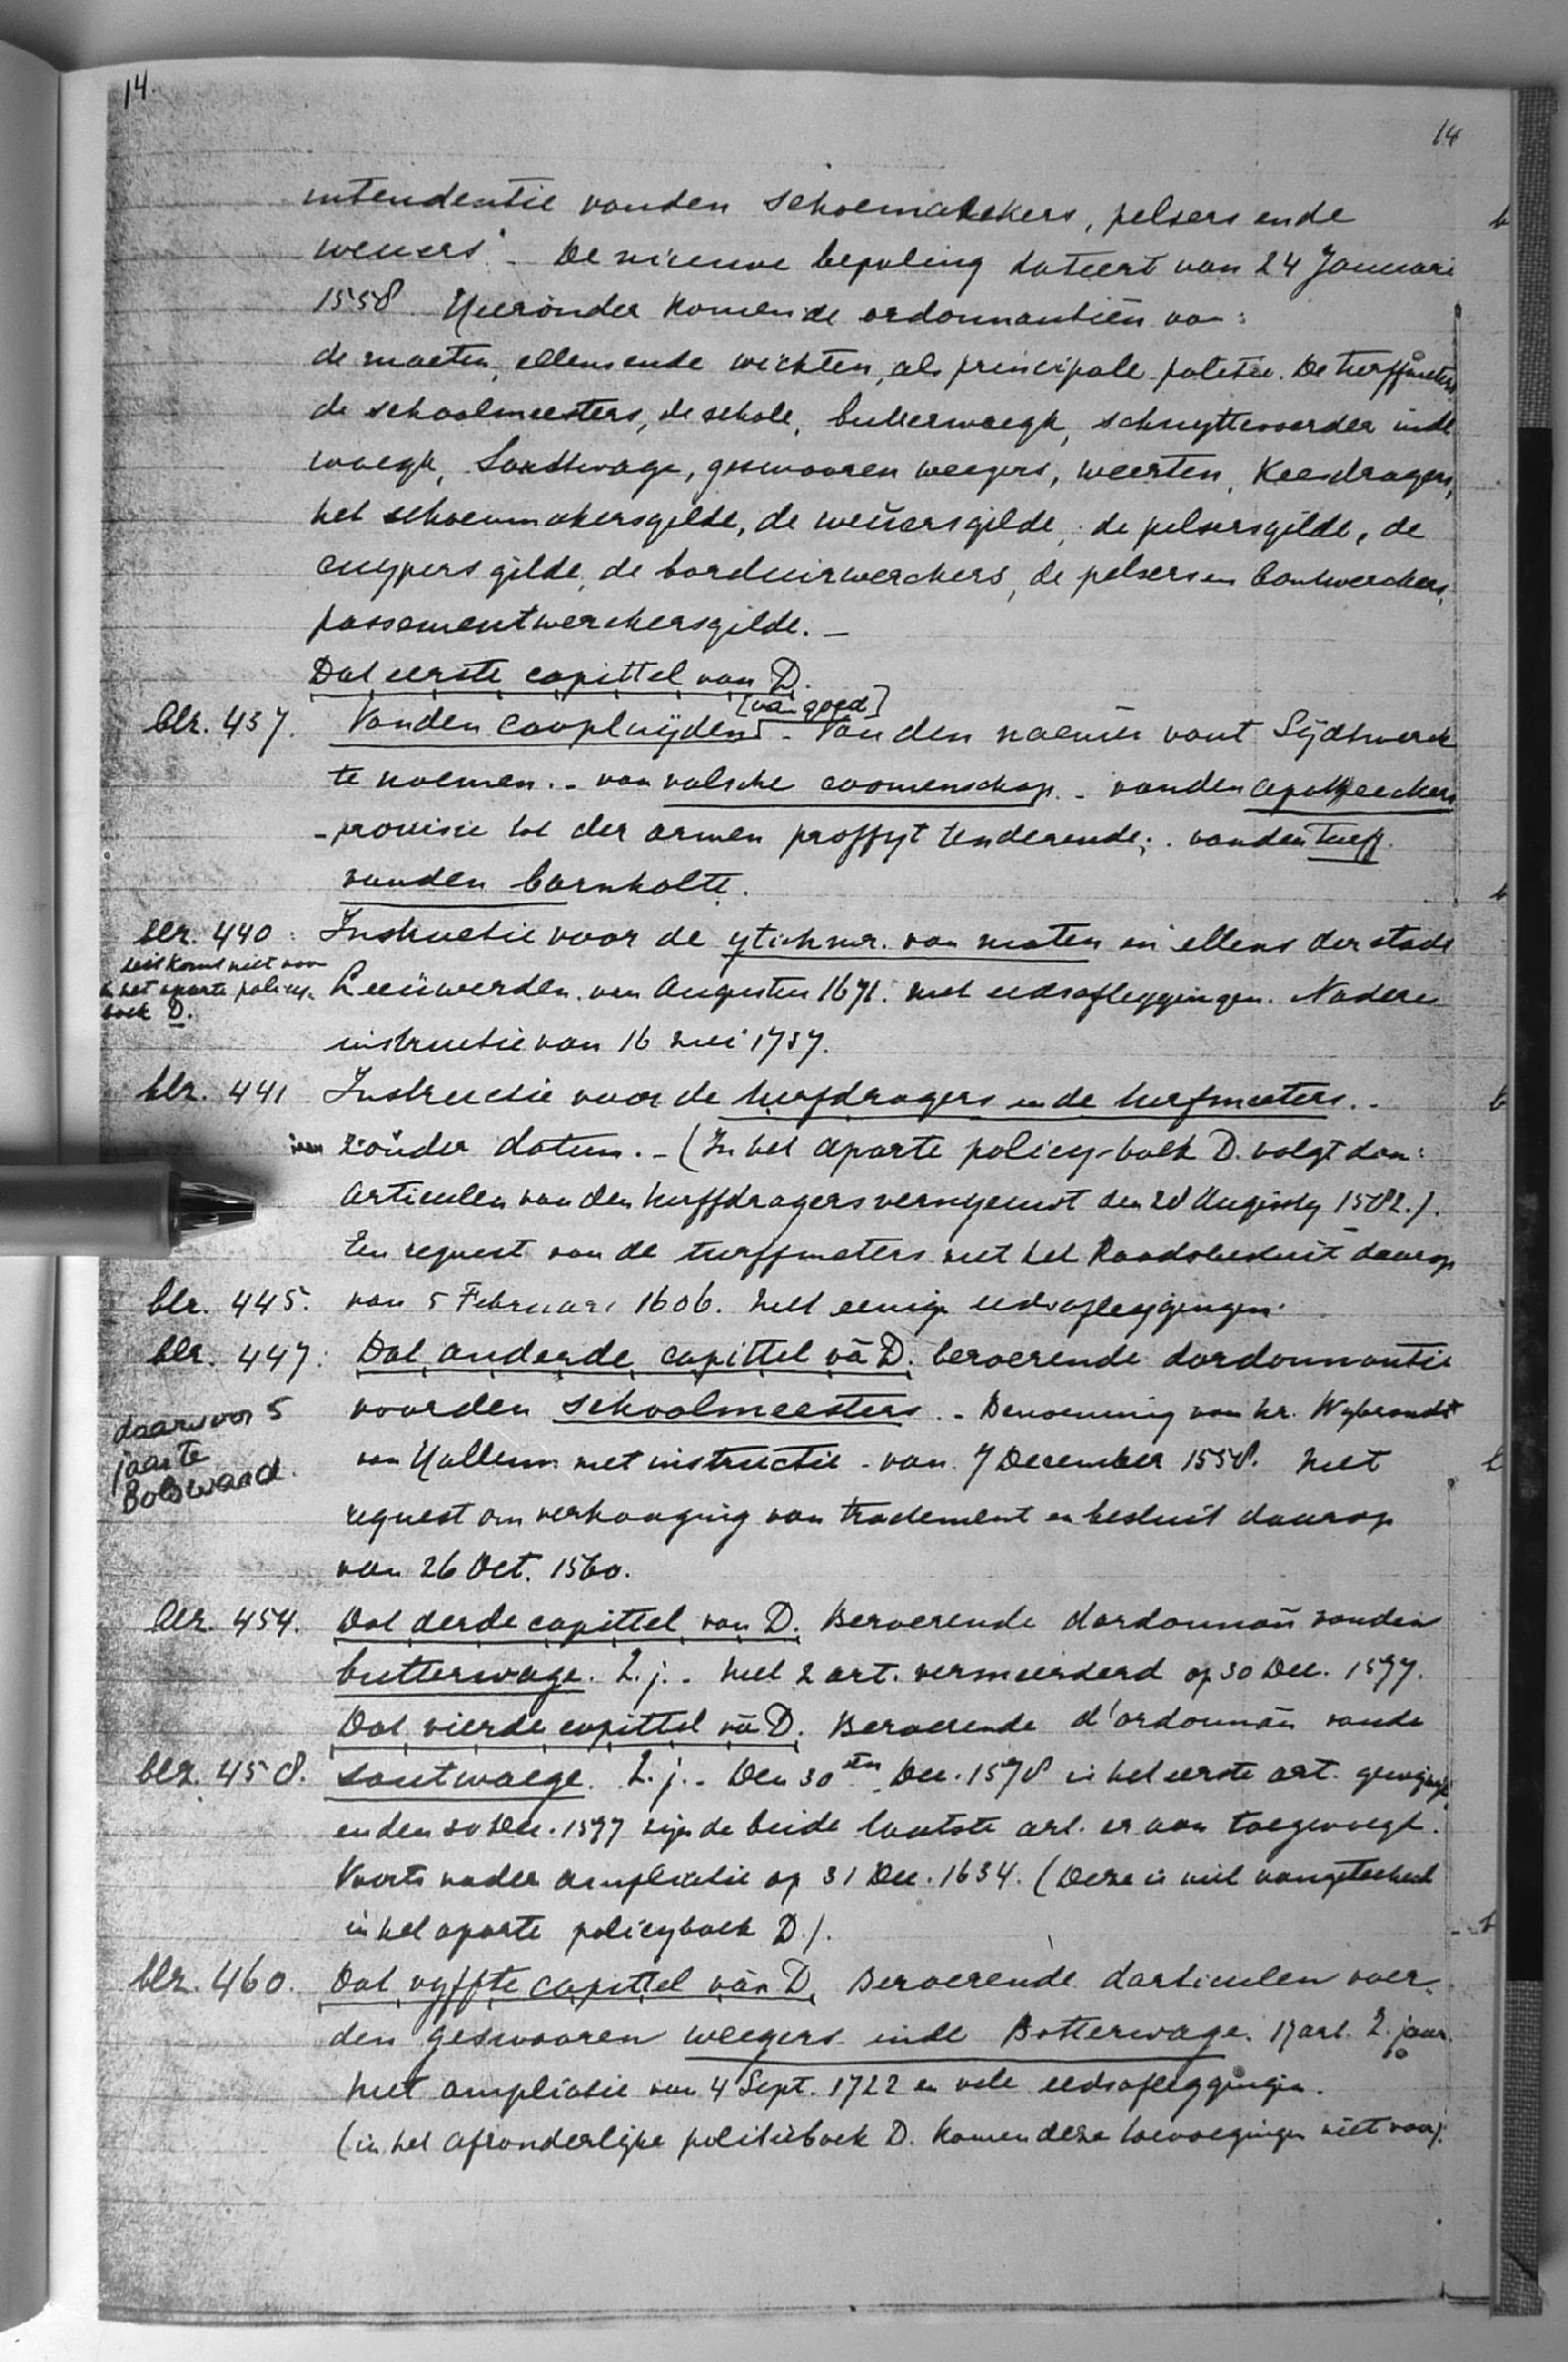 14.
14
intendentie vanden schoemakekers, pelsers ende
weuers". - De nieuwe bepaling dateert van 24 Januari
1558. Hieronder komen de ordonnantiën van:
de maeten, ellens ende wichten, als principale politie. De turffmeters,
de schoolmeesters, de schole, butterwaegh, schuyttevoerder inde
waegh, Soudtwage, geswaaren weegers, weerten, Keesdragers,
het schoenmakersgilde, de weüersgilde, de pelsersgilde, de
cuypers gilde, de borduirwerckers, de pelsers en bontwerckers,
passementwerckersgilde. -
Dat eerste capittel van D.
[vā goed]
blz. 437. Vanden coopluijden - Van den naemen vant Sijdtwerck
te noemen. - van valsche coomenschap. - vanden apotheeckers
- provisie tot der armen proffyt tenderende; . vanden turff.
vanden barnholte.
blz. 440: Instructie voor de ytickmr. van maten en ellens der stadt
deit komt niet voor
in het aparte policy-
boek D.
Leeüwerden. van Augustus 1671. met eedsafleggingen. Nadere
instructie van 16 mei 1737.
blz. 441 Instructie voor de turfdragers en de turfmeters. -
zonder datum. - (In het aparte policy-boek D. volgt dan:
Articulen van den turffdragers vernyeuwt den 28 Augusty 1582.).
Een request van de turffmeters met het Raadsbesluit daarop
blz. 445. van 5 Februari 1606. Met eenige eedsafleggingen.
blz. 447: Dat anderde capittel vā D. beroerende dordonnantie
voorden schoolmeesters. - Benoeming van hr. Wybrandt
daarvoor 5
jaar te
Bolsward.
van Hallum met instructie - van 7 December 1558. Met
request om verhooging van tractement en besluit daarop
van 26 Oct. 1560.
blz. 454. Dat derde capittel van D. Beroerende dordonnañ vanden
butterwage. Z.j. - Met 2 art. vermeerderd op 30 Dec. 1597.
Dat vierde capittel vā D. Beroerende d'ordonnān vande
blz. 458. soutwaege. Z.j. - Den 30sten Dec. 1578 is het eerste art. gewijzigd
en den 30 Dec. 1597 zijn de beide laatste art. er aan toegevoegd.
Voorts nader ampliatie op 31 Dec. 1634. (Deze is niet aangeteekend
in het aparte policyboek D.).
blz. 460. Dat vyffte capittel vān D. Beroerende darticulen voer-
den geswaaren weegers inde Botterwage. 17 art. Z. jaar.
Met ampliatie van 4 Sept. 1722 en vele eedsafleggingen.
(in het afzonderlijke politieboek D. komen deze toevoegingen niet voor).